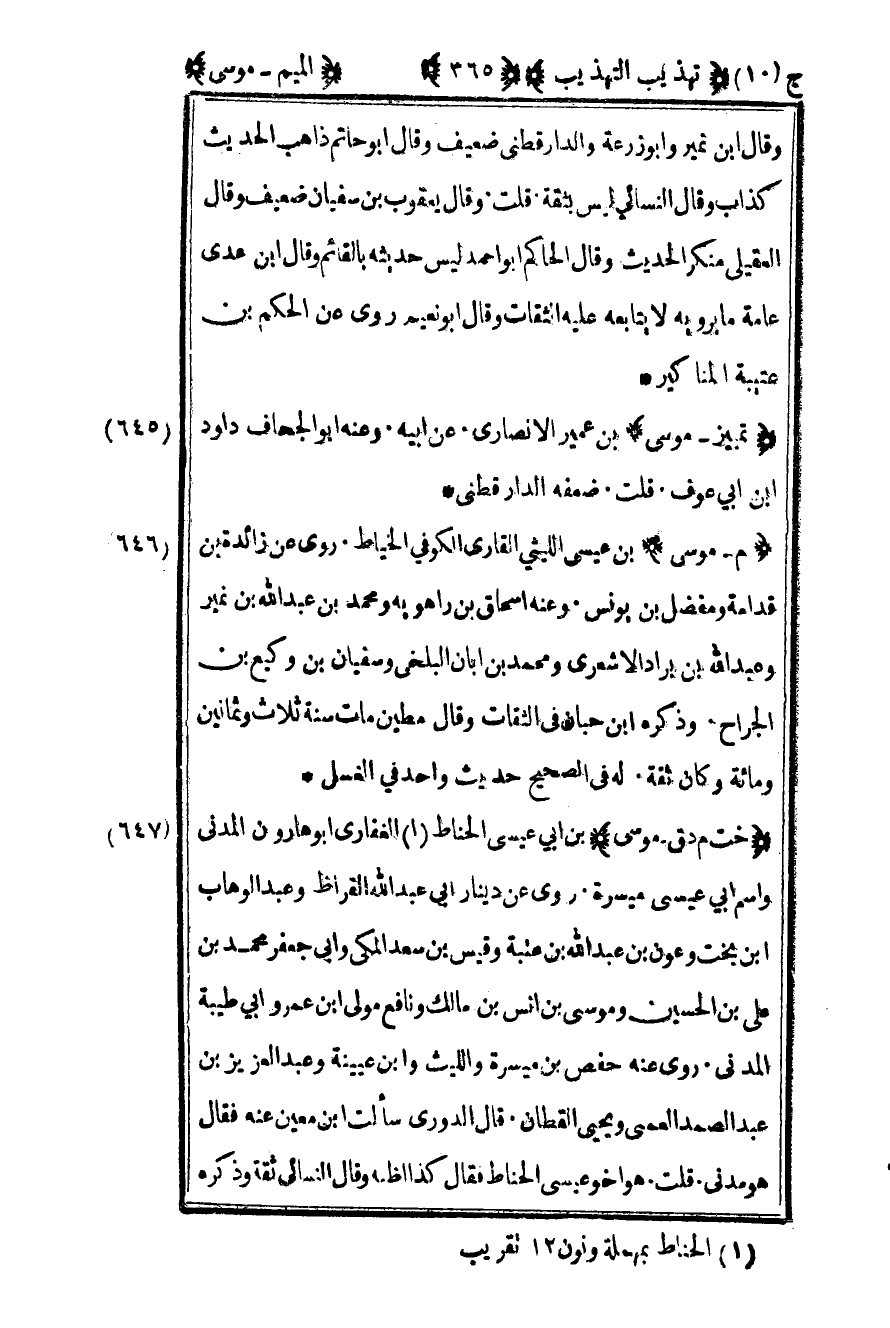 ج (١٠) ﴿ تهذيب التهذيب ﴾ ﴿ ٣٦٥ ﴾ ﴿ الميم - موسى ﴾
وقال ابن نمير وابو زرعة والدارقطنى ضعيف وقال ابو حاتم ذاهب الحديث
كذاب وقال النسائي ليس بثقة • قلت • وقال يعقوب بن سفيان ضعيف وقال
العقيلى منكر الحديث وقال الحاكم ابو احمد ليس حديثه بالقائم وقال ابن عدى
عامة ما يرويه لا يتابعه عليه الثقات وقال ابو نعيم روى عن الحكم بن
عتيبة المناكير *
﴿ تمييز - موسى ﴾ بن عمير الانصارى • عن ابيه • وعنه ابو الجحاف داود (٦٤٥)
ابن ابي عوف • قلت • ضعفه الدارقطنى *
﴿ م - موسى ﴾ بن عيسى الليثي القارى الكوفي الخياط • روى عن زائدة بن (٦٤٦)
قدامة ومفضل بن يونس • وعنه اسحاق بن راهويه ومحمد بن عبدالله بن نمير
وعبدالله بن براد الاشعرى ومحمد بن ابان البلخى وسفيان بن وكيع بن
الجراح • وذكره ابن حبان فى الثقات وقال مطين مات سنة ثلاث وثمانين
ومائة وكان ثقة • له فى الصحيح حديث واحد في الغسل *
﴿ خت م د ق - موسى ﴾ بن ابي عيسى الحناط (١) الغفارى ابو هارون المدنى (٦٤٧)
واسم ابي عيسى ميسرة • روى عن دينار ابي عبدالله القراظ وعبد الوهاب
ابن بخت وعون بن عبدالله بن عتبة وقيس بن سعد المكى وابي جعفر محمد بن
على بن الحسين وموسى بن انس بن مالك ونافع مولى ابن عمر و ابي طيبة
المدنى • روى عنه حفص بن ميسرة والليث وابن عيينة وعبد العزيز بن
عبد الصمد العمى ويحيى القطان • قال الدورى سألت ابن معين عنه فقال
هو مدنى • قلت • هو اخو عيسى الحناط فقال كذا اظنه وقال النسائى ثقة وذكره
(١) الحناط بمهملة ونون ١٢ تقريب